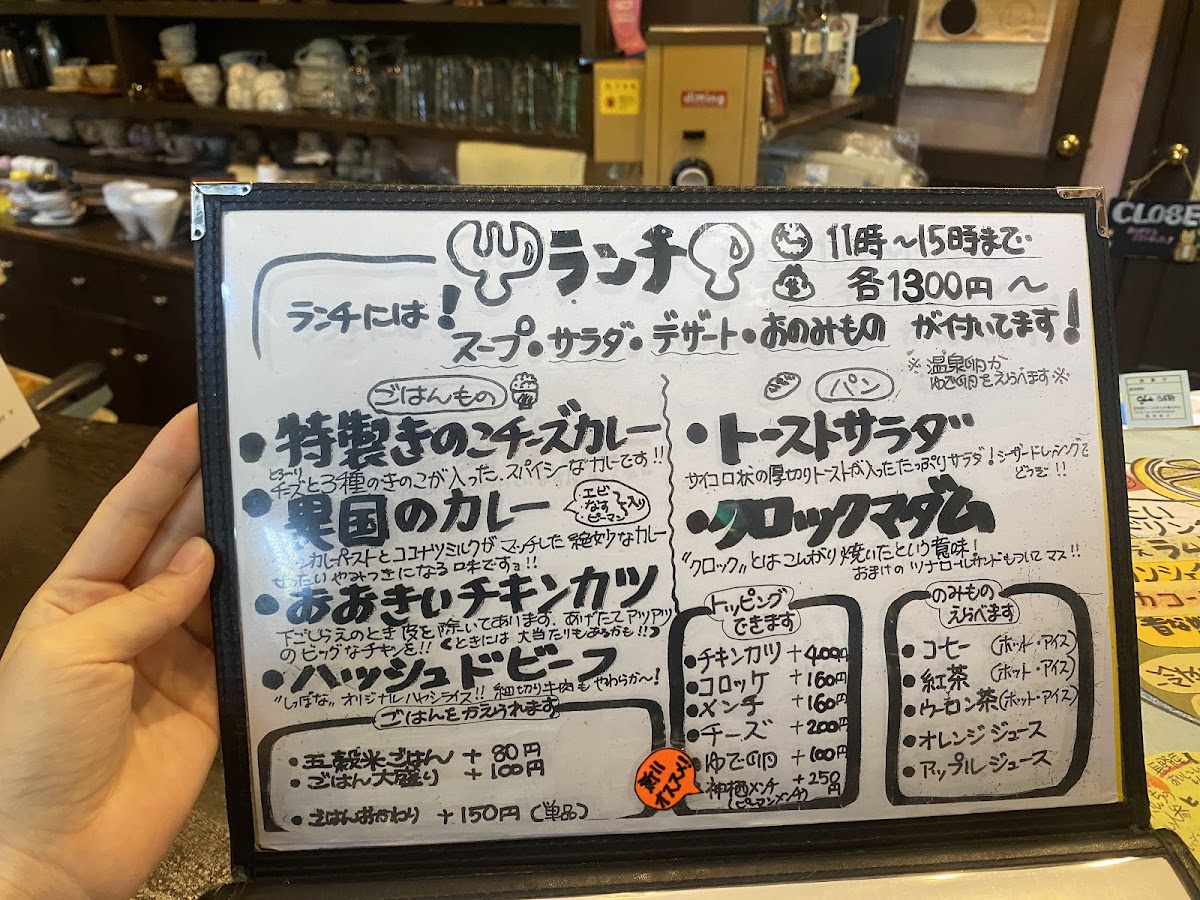 diTTing
CLOSE
ランチ
11時~15時まで
各1300円~
ランチには!
スープ・サラダ・デザート・おのみもの が付いてます!
※温泉卵か
ゆで卵をえらべます※
ごはんもの
・特製きのこチーズカレー
チーズと3種のきのこが入った、スパイシーなカレーです!!
・異国のカレー
エビ
なす
ピーマン
入り
カレーペーストとココナツミルクがマッチした絶妙なカレー
やみつきになる味ですョ!!
・おおきぃチキンカツ
下ごしらえのとき皮を除いてあります。あげたてアツアツ
のビッグなチキンを!! くときには大当たりもあるかも!!
・ハッシュドビーフ
オリジナルハヤシライス!! 細切り牛肉もやわらか~!
ごはんを変えられます
・五穀米ごはん +80円
・ごはん大盛り +100円
・ごはんおかわり +150円(単品)
パン
・トーストサラダ
サイコロ状の厚切りトーストが入ったたっぷりサラダ!シーザードレッシングで
どうぞ!!
・クロックマダム
"クロック"とはこんがり焼いたという意味!
おまけのツナロールサンドもついてマス!!
トッピング
できます
・チキンカツ +400円
・コロッケ +160円
・メンチ +160円
・チーズ +200円
・ゆで卵 +100円
・神栖メンチ +250円
(ピーマンメンチ)
オススメ!!
のみもの
えらべます
・コーヒー (ホット・アイス)
・紅茶 (ホット・アイス)
・ウーロン茶(ホット・アイス)
・オレンジジュース
・アップルジュース